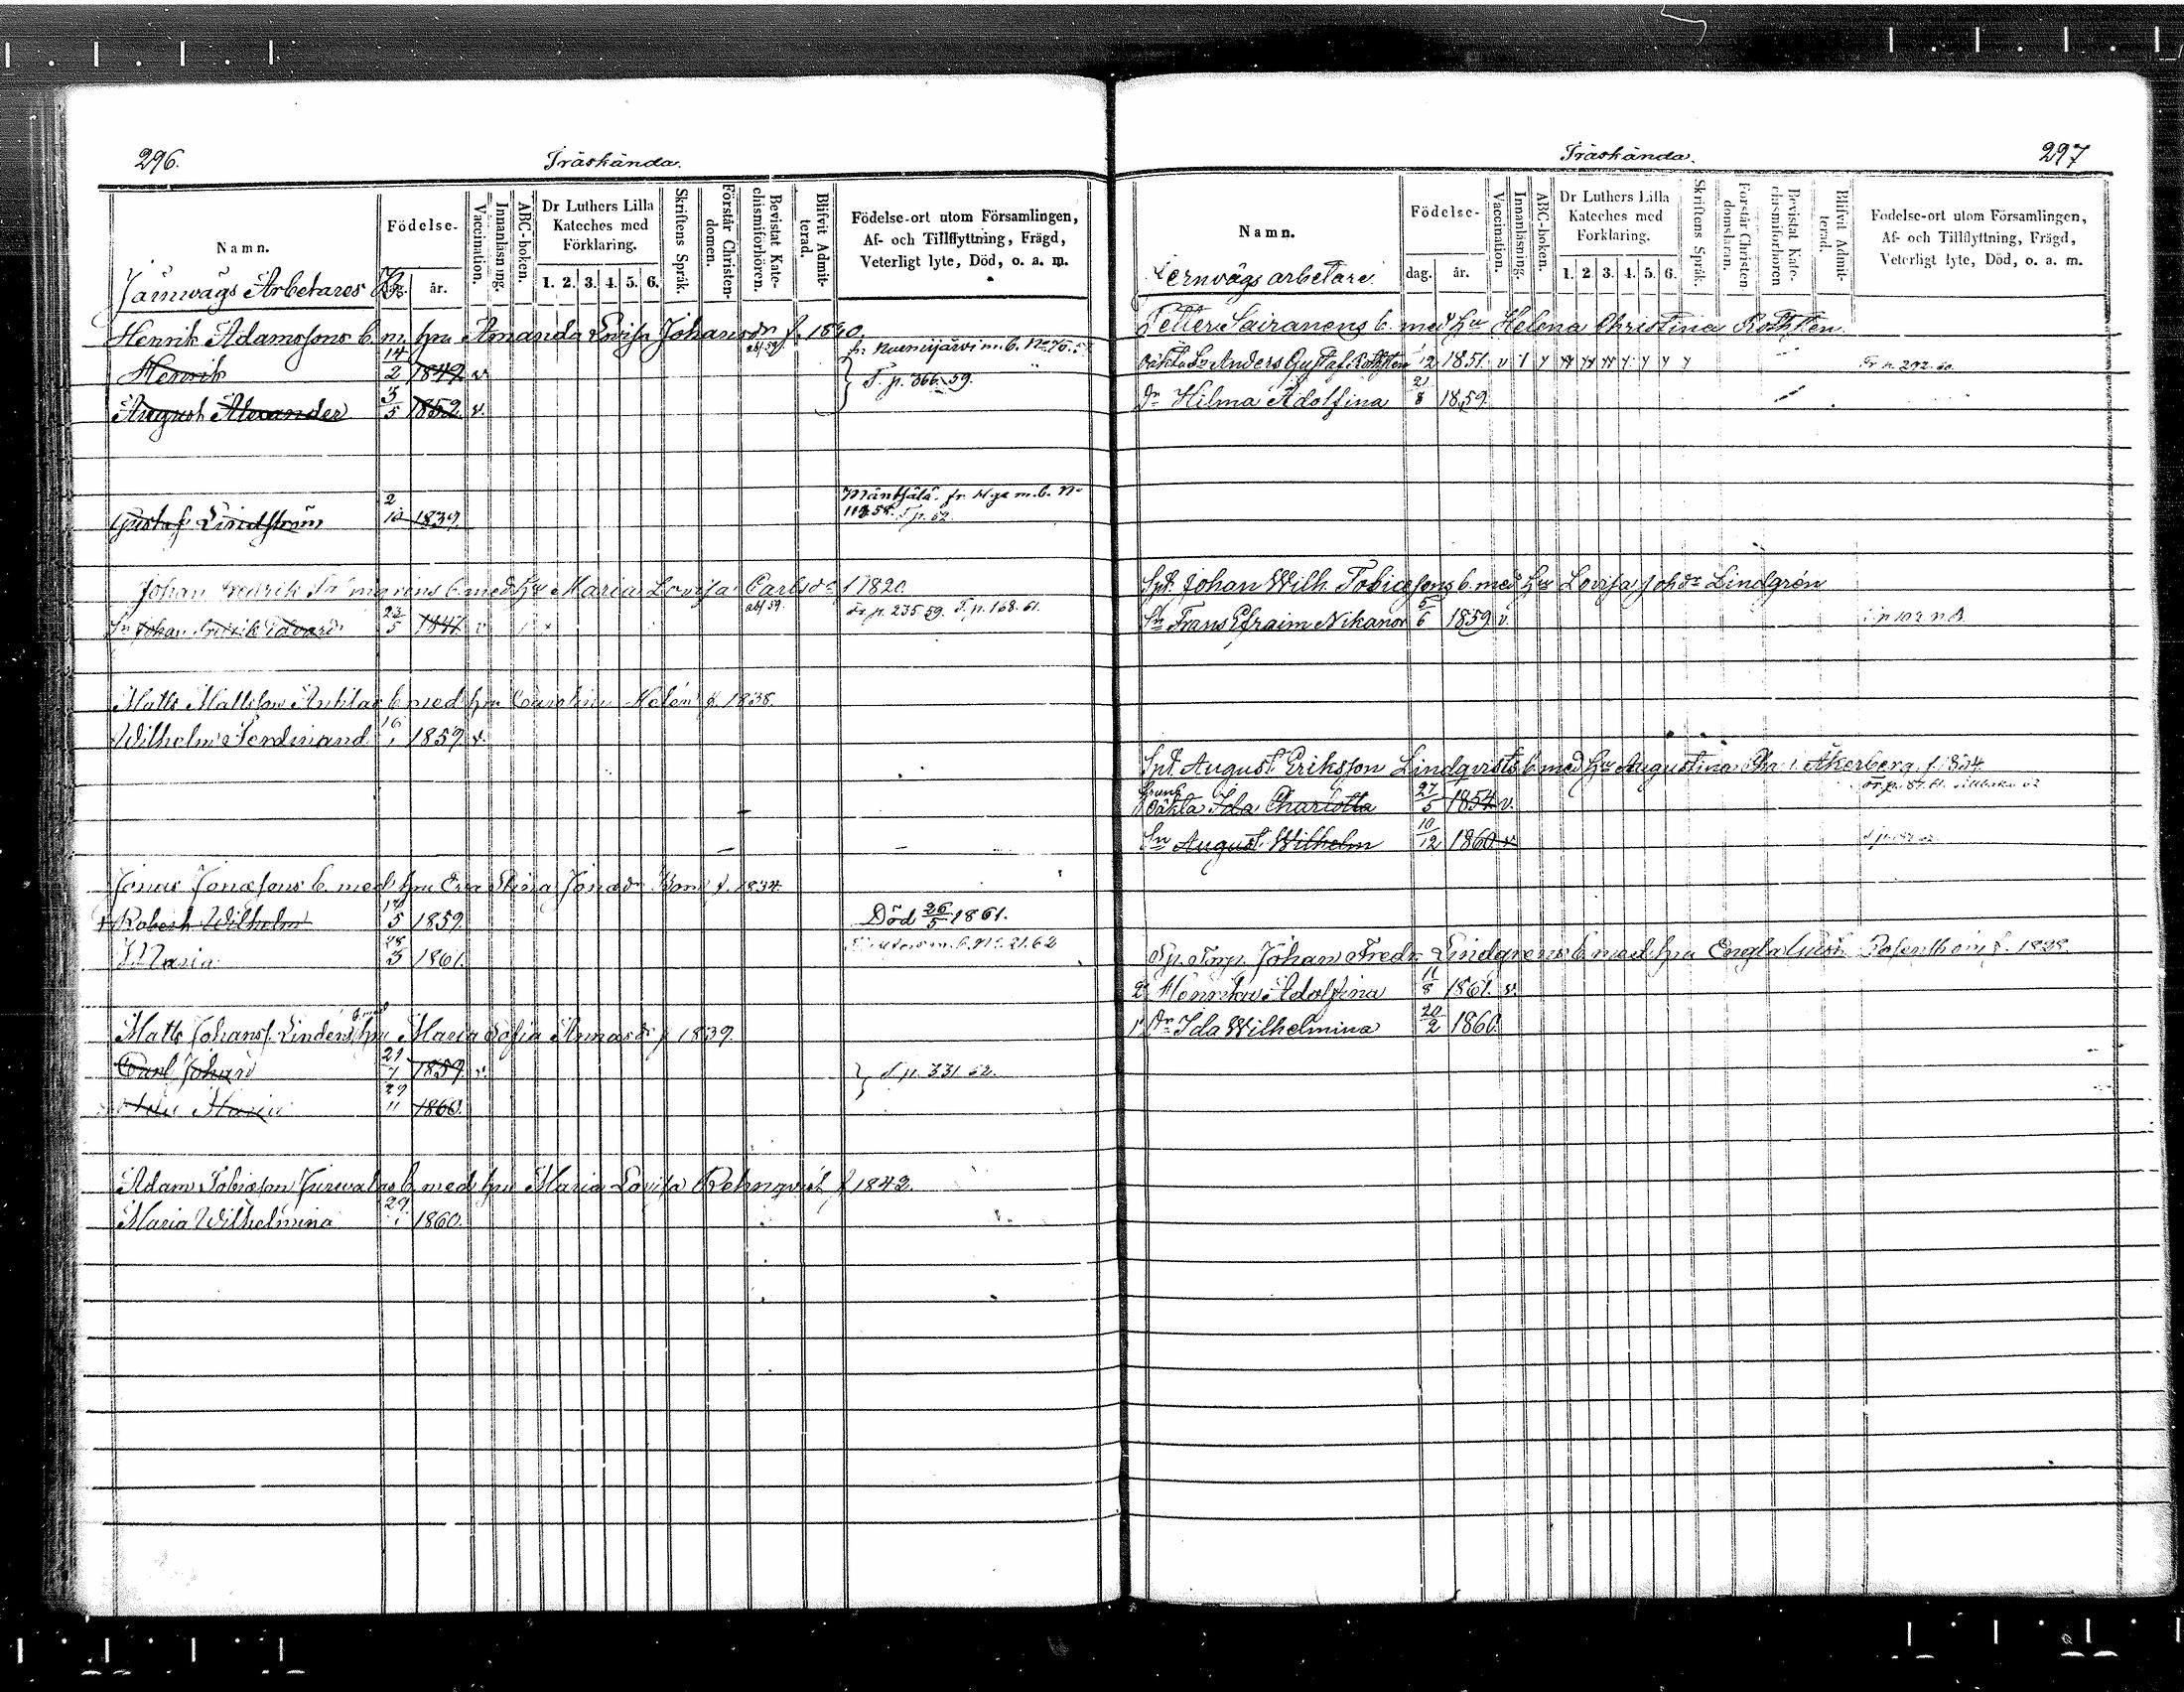 296.
Träskända.
Namn.
Födelse-
år.
Vaccination.
Innanläsning.
ABC-boken.
Dr Luthers Lilla Kateches med Förklaring.
1. 2. 3. 4. 5. 6.
Skriftens Språk.
Förstår Christendomen.
Bevistat Katechismiförhören.
Blifvit Admitterad.
Födelse-ort utom Församlingen,
Af- och Tillflyttning, Frägd,
Veterligt lyte, Död, o. a. m.
Järnwägs Arbetares
Henrik Adamssons b. m. hru Amanda Lovisa Johansdr f. 1820
abs 59 fr. Nurmijärvi m. b. No 70.
Henrik 14/2 1849 v T. p. 366. 59.
August Alexander 3/5 1852 v.
Mäntsälä. fr. H:ge m. b. No
Gustaf Lindström 2/10 1839 T. p. 62.
Johan Fredrik b med Hu Maria Lovisa Carlsdr f 1820.
abs 59. Fr. p. 235. 59. T. p. 168. 61.
Sn Johan Fredrik Edvard 23/5 1847 v
Matts Mattsson b med hru Carolina Helén f. 1838.
Wilhelm Ferdinand 16/1 1859 v.
Jonas Jonassons b. med hru Eva Stina Jonasdr f. 1834
+ Robert Wilhelm 17/5 1859. Död 26/5 1861.
Maria 28/3 1861. m. b. No. 21. 62
b. med
Matts Johanss. Lindéns hru Maria Sofia f 1839.
Carl Johan 21/1 1859. v. T. p. 331. 62.
Maria 29/11 1860.
Adam Tobiasson b med hru Maria Lovisa Rehnqvist f 1843.
Maria Wilhelmina 29/1 1860.
Träskända.
297
Namn.
Födelse-
dag. år.
Vaccination.
Innanläsning.
ABC-boken.
Dr Luthers Lilla Kateches med Förklaring.
1. 2. 3. 4. 5. 6.
Skriftens Språk.
Förstår Christendomsläran.
Bevistat Katechismiförhören
Blifvit Admitterad.
Födelse-ort utom Församlingen,
Af- och Tillflyttning, Frägd,
Veterligt lyte, Död, o. a. m.
Jernvägs arbetare.
Petter Sairanens b. med Hu Helena Christina Rothsten.
oäkta Sn Anders Gustaf Rothsten 12 1851. v Fr. p. 292. 60.
Dr Hilma Adolfina 21/8 1859.
Spt. Johan Wilh. Tobiassons b. med Hu Lovisa Johdr Lindgrén
Sn Frans Efraim Nikanor 5/6 1859 v.
Spt. August Eriksson Lindqvists b. med Hu Augustina Åkerberg. f. 1824.
oäkta Ida Charlotta 27/5 1854 v.
Sn August Wilhelm 10/12 1860 v
Johan Fredr. Lindgrens b med hru Engla f. 1828.
2. Henrika Adolfina 11/8 1861. v.
1. Dr Ida Wilhelmina 20/2 1860.